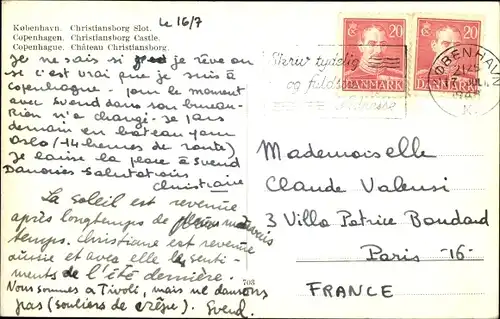 Le 16/7
København. Christiansborg Slot.
Copenhagen. Christiansborg Castle.
Copenhague. Château Christiansborg.
Je ne sais si je rêve ou
si c'est vrai que je suis à
Copenhague - pour le moment
avec Svend dans son bureau -
Rien n'a changé - Je pars
demain en bateau pour
Oslo (14 heures de route)
Je laisse la place à Svend
Danoises Salutations
Christiane
La soleil est revenue
après longtemps de mauvais
temps. Christiane est revenue
aussie et avec elle les senti-
ments de l'été dernière.
Nous sommes a Tivoli, mais ne dansons
pas (souliers de crêpe). Svend.
703
20
DANMARK
20
DANMARK
Skriv tydelig
og fulds
Adresse
KØBENHAVN
K.
Mademoiselle
Claude Valensi
3 Villa Patrice Boudard
Paris -16-
FRANCE